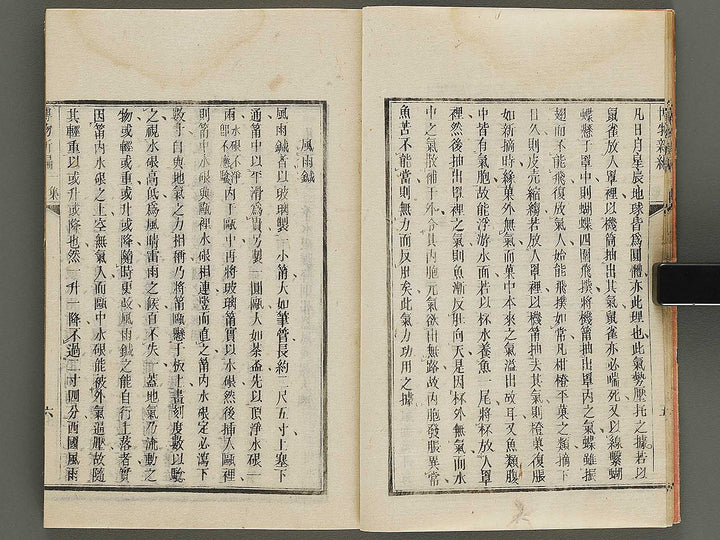 博物新編
凡日月星辰地球皆爲圓體亦此理也此氣勢壓托之據若以
鼠雀放人罩裡以機筒抽出其氣鼠雀亦必喘死又以線繫蝴
蝶懸于罩中則蝴蝶四圍飛撲將機筩抽出罩内之氣蝶雖振
翅而不能飛復放氣人始能飛撲如常凡柑橙平菓之類摘下
日久則皮壳縮縐若放人罩裡以機筩抽去其氣則橙菓復脹
如新摘時緣菓外無氣而菓中本來之氣溢出故耳又魚類腹
中皆有氣胞故能浮游水面若以杯水養魚一尾將杯放人罩
裡然後抽出罩裡之氣則魚漸反肚向天是因杯外無氣而水
中之氣散補于外令其内胞元氣欲出無路故内胞發脹異常
魚苦不能當則無力而反肚矣此氣力功用之據
五
風雨鍼
風雨鍼者以玻璃製一小筩大如筆管長約二尺五寸上塞下
通筩中以平滑爲貴另製一圓甌大如茶盃先以頂淨水硍一
兩水硍不淨即不應驗内于甌中再將玻璃筩實以水硍然後插入甌裡
則筩中水硍與甌裡水硍相連豎而直之筩内水硍定必瀉下
數寸自與地氣之力相稱乃將筩甌懸于板上畫刻度數以驗
之視水硍高低爲風晴雷雨之候百不失一蓋地氣乃流動之
物或輕或重或升或降隨時更改風雨鍼之能自行上落者實
因筩内水硍之上空無氣人而甌中水硍能被外氣逼壓故隨
其輕重以或升或降也然一升一降不過三寸四分西國風雨
博物新編
集
六